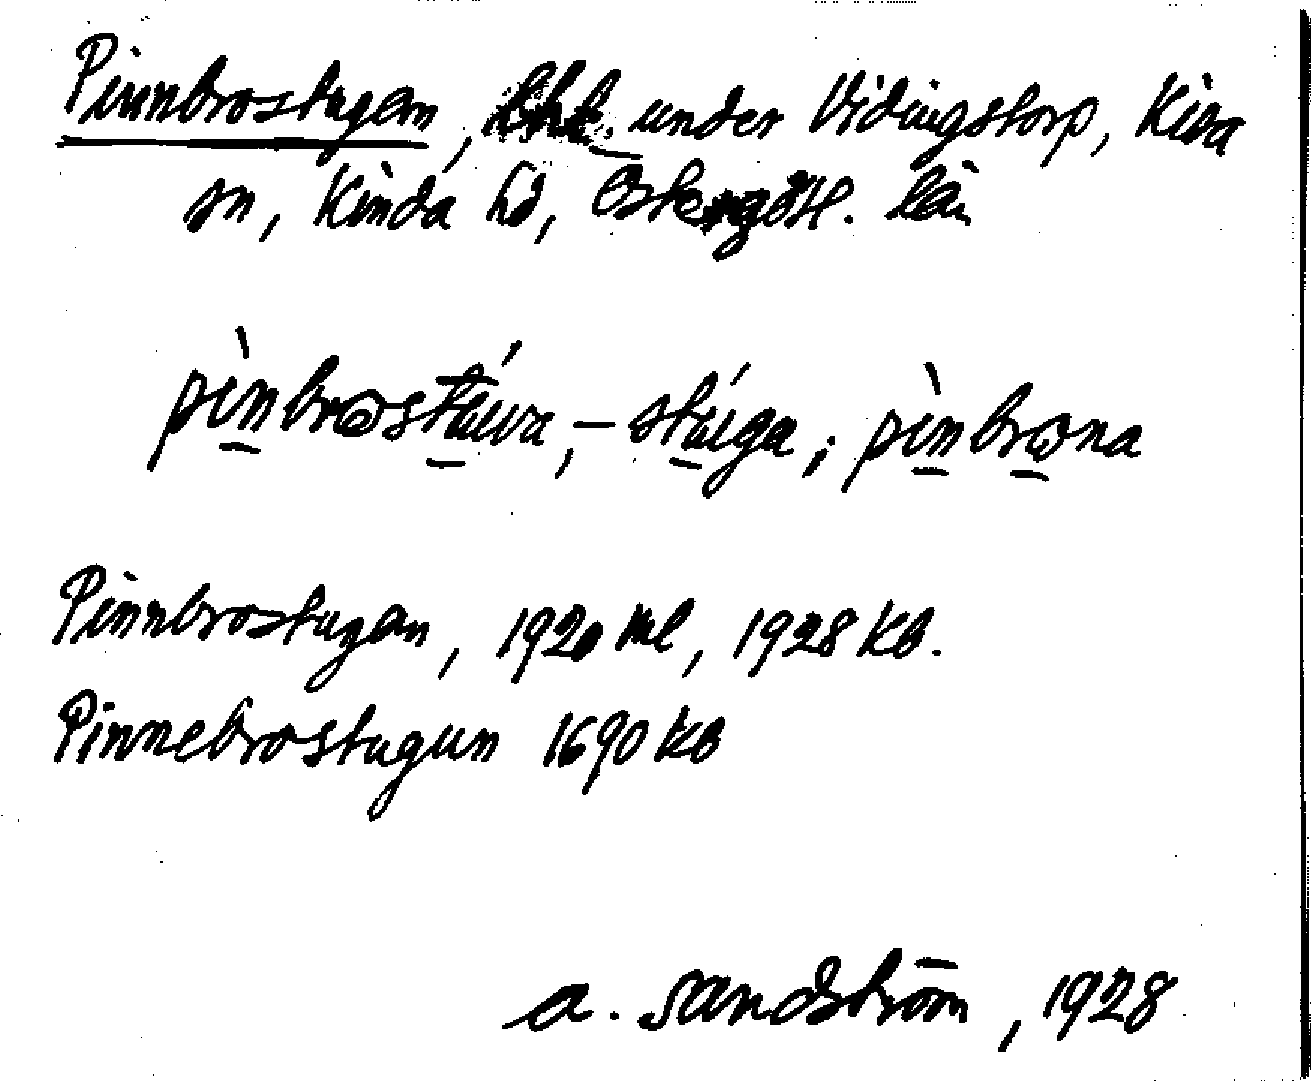 Pinnbrostugan, lht. under Vidingstorp, Kisa
sn, Kinda hd, Östergötl. län
pìnbrostúva, - stúga; pìnbrona
Pinnbrostugan, 1920 ml, 1928 Kb.
Pinnebrostugun 1690 Kb
A. Sandström, 1928